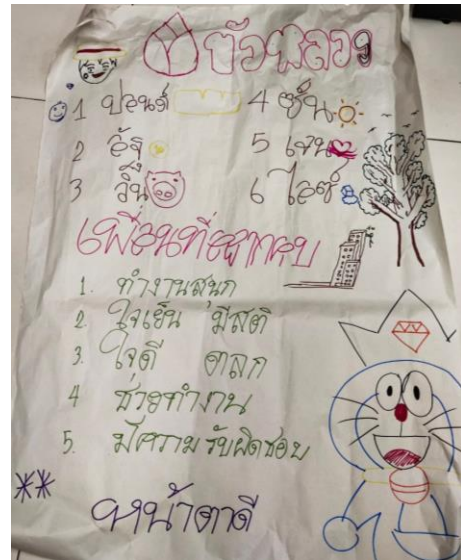 บัวหลวง
1 ปอนด์ 4 ซัน
2 อัฐ 5 เจน
3 วิ้น 6 ไอซ์
เพื่อนที่อยากคบ
1. ทำงานสนุก
2. ใจเย็น มีสติ
3. ใจดี ตลก
4 ช่วยทำงาน
5. มีความรับผิดชอบ
** หน้าตาดี